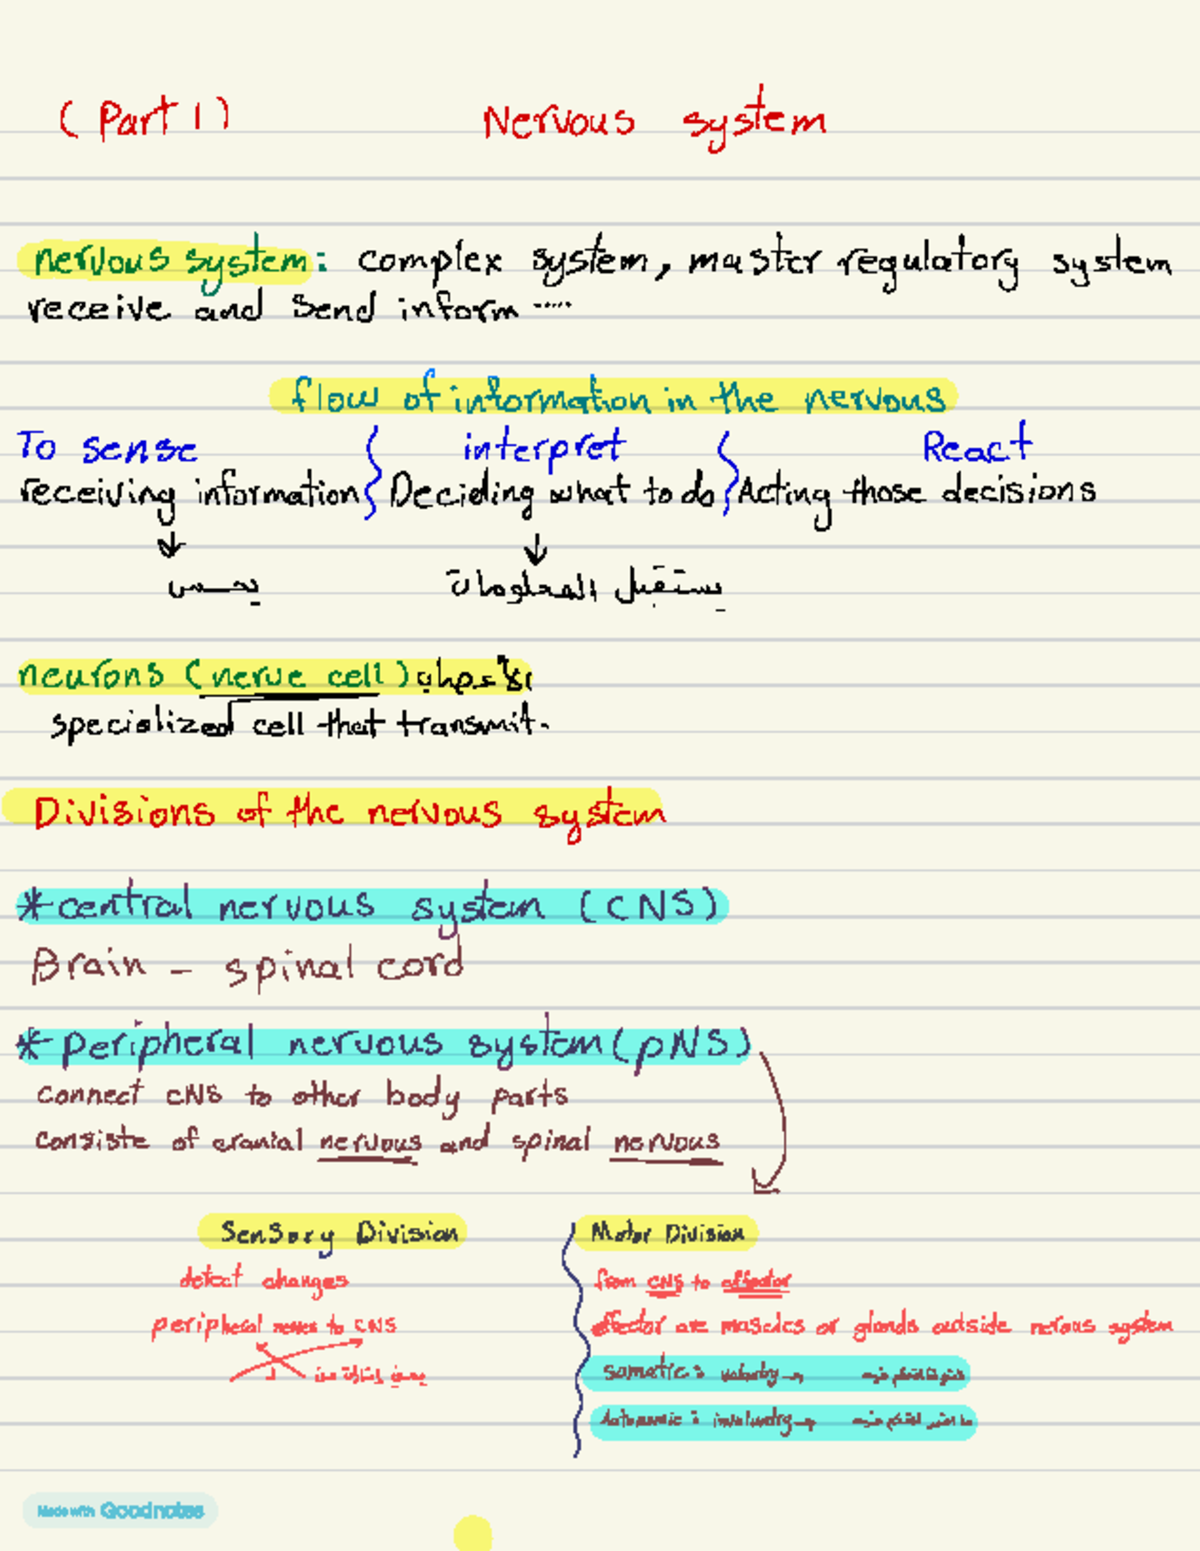 ( Part 1 ) Nervous system
nervous system: complex system, master regulatory system
receive and send inform .....
flow of information in the nervous
To sense interpret React
receiving information Deciding what to do Acting those decisions
يحس يستقبل المعلومات
neurons (nerve cell)
specialized cell that transmit.
Divisions of the nervous system
*central nervous system (CNS)
Brain - spinal cord
*peripheral nervous system (pNS)
connect CNS to other body parts
consiste of cranial nervous and spinal nervous
Sensory Division Motor Division
detect changes from CNS to affector
peripheral nerves to CNS effector are mascles or glands outside nervous system
somatic:
: involuntry→
Made with Goodnotes